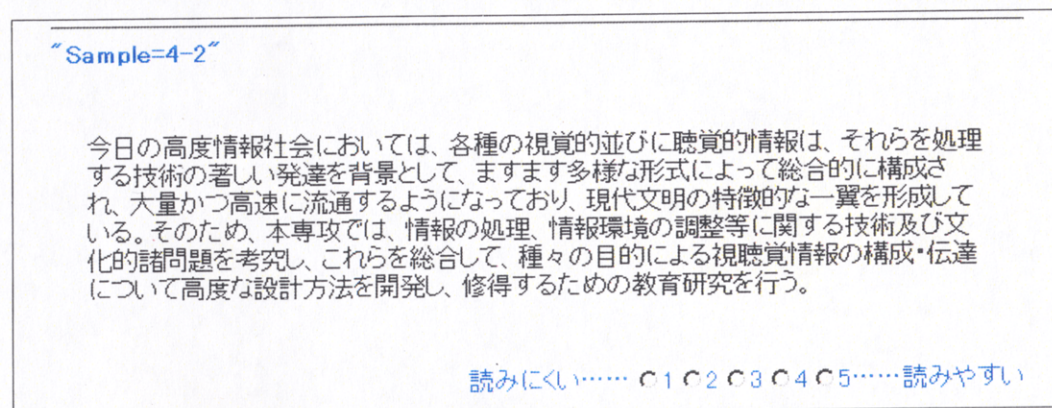 "Sample=4-2"
今日の高度情報社会においては、各種の視覚的並びに聴覚的情報は、それらを処理
する技術の著しい発達を背景として、ますます多様な形式によって総合的に構成さ
れ、大量かつ高速に流通するようになっており、現代文明の特徴的な一翼を形成して
いる。そのため、本専攻では、情報の処理、情報環境の調整等に関する技術及び文
化的諸問題を考究し、これらを総合して、種々の目的による視聴覚情報の構成・伝達
について高度な設計方法を開発し、修得するための教育研究を行う。
読みにくい…… 1 2 3 4 5……読みやすい